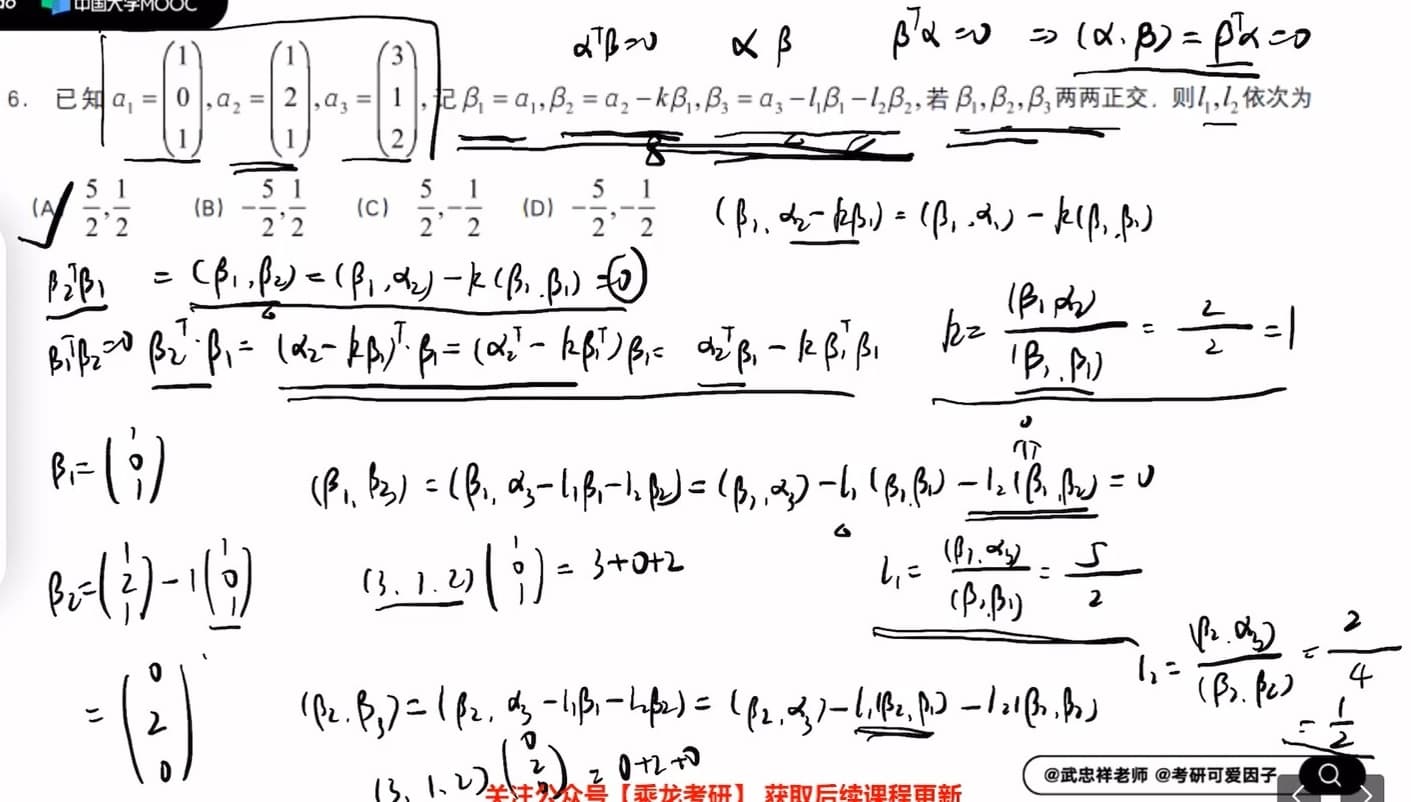 中国大学MOOC
αᵀβ=0 α β βᵀα=0 ⇒ (α.β)=βᵀα=0
6. 已知 α₁ = (1 0 1), α₂ = (1 2 1), α₃ = (3 1 2), 记 β₁ = α₁, β₂ = α₂ − kβ₁, β₃ = α₃ − l₁β₁ − l₂β₂, 若 β₁, β₂, β₃ 两两正交. 则 l₁, l₂ 依次为
(A) 5/2, 1/2 (B) −5/2, 1/2 (C) 5/2, −1/2 (D) −5/2, −1/2
(β₁, α₂−kβ₁) = (β₁,α₁) − k(β₁,β₁)
β₂ᵀβ₁ = (β₁,β₂) = (β₁,α₂) − k(β₁.β₁) = 0
β₁ᵀβ₂=0 β₂ᵀ·β₁ = (α₂−kβ₁)ᵀ·β₁ = (α₂ᵀ − kβ₁ᵀ)β₁ = α₂ᵀβ₁ − kβ₁ᵀβ₁
k = (β₁ α₂)/(β₁.β₁) = 2/2 = 1
β₁ = (1 0 1)
0
(β₁, β₃) = (β₁, α₃−l₁β₁−l₂β₂) = (β₁,α₃) − l₁(β₁β₁) − l₂(β₁,β₂) = 0
β₂ = (1 2 1) − 1(1 0 1)
(3.1.2)(1 0 1) = 3+0+2
l₁ = (β₁.α₃)/(β₁β₁) = 5/2
= (0 2 0)
(β₂.β₃) = (β₂, α₃−l₁β₁−l₂β₂) = (β₂,α₃) − l₁(β₂,β₁) − l₂(β₂,β₂)
l₂ = (β₂.α₃)/(β₂.β₂) = 2/4
= 1/2
(3, 1.2)(0 2 0) = 0+2+0
@武忠祥老师 @考研可爱因子
关注公众号【乘龙考研】 获取后续课程更新